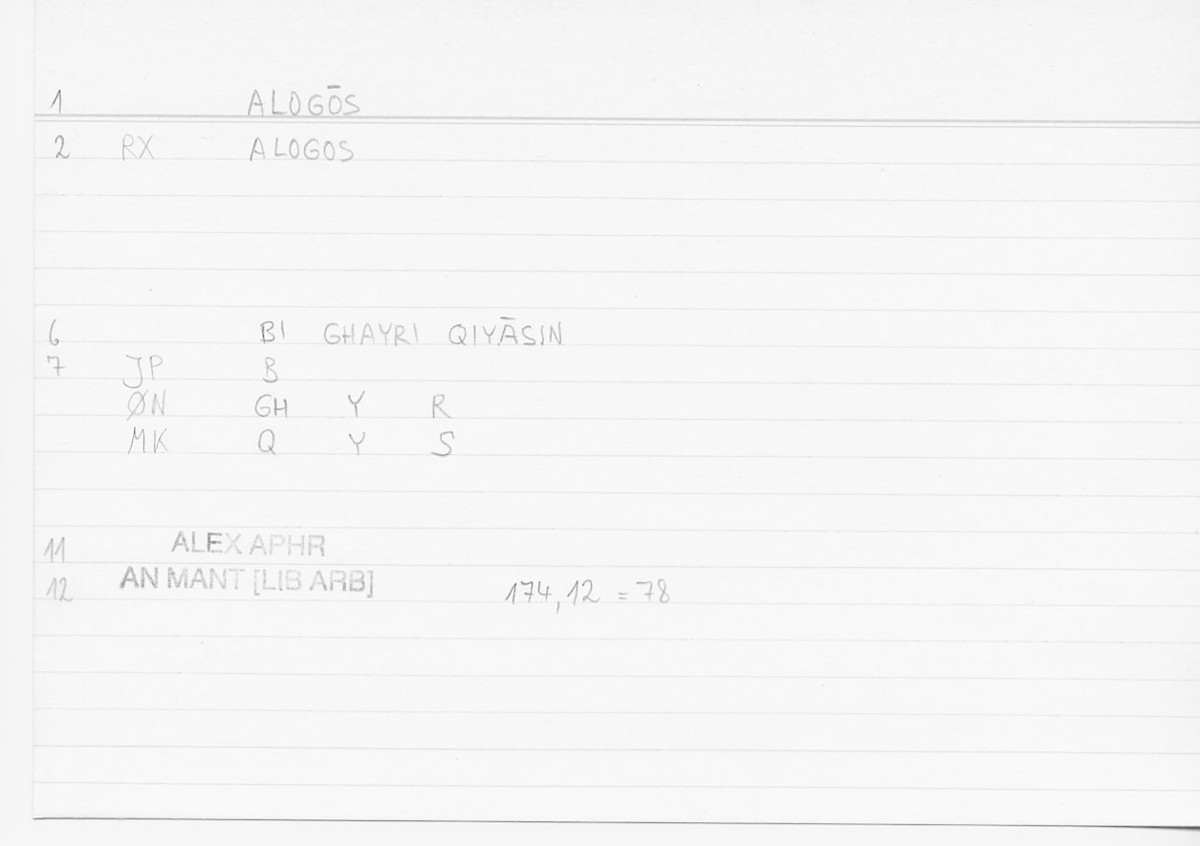 1 ALOGŌS
2 RX ALOGOS
6 BI GHAYRI QIYĀSIN
7 JP B
ØN GH Y R
MK Q Y S
11 ALEX APHR
12 AN MANT [LIB ARB] 174,12 = 78